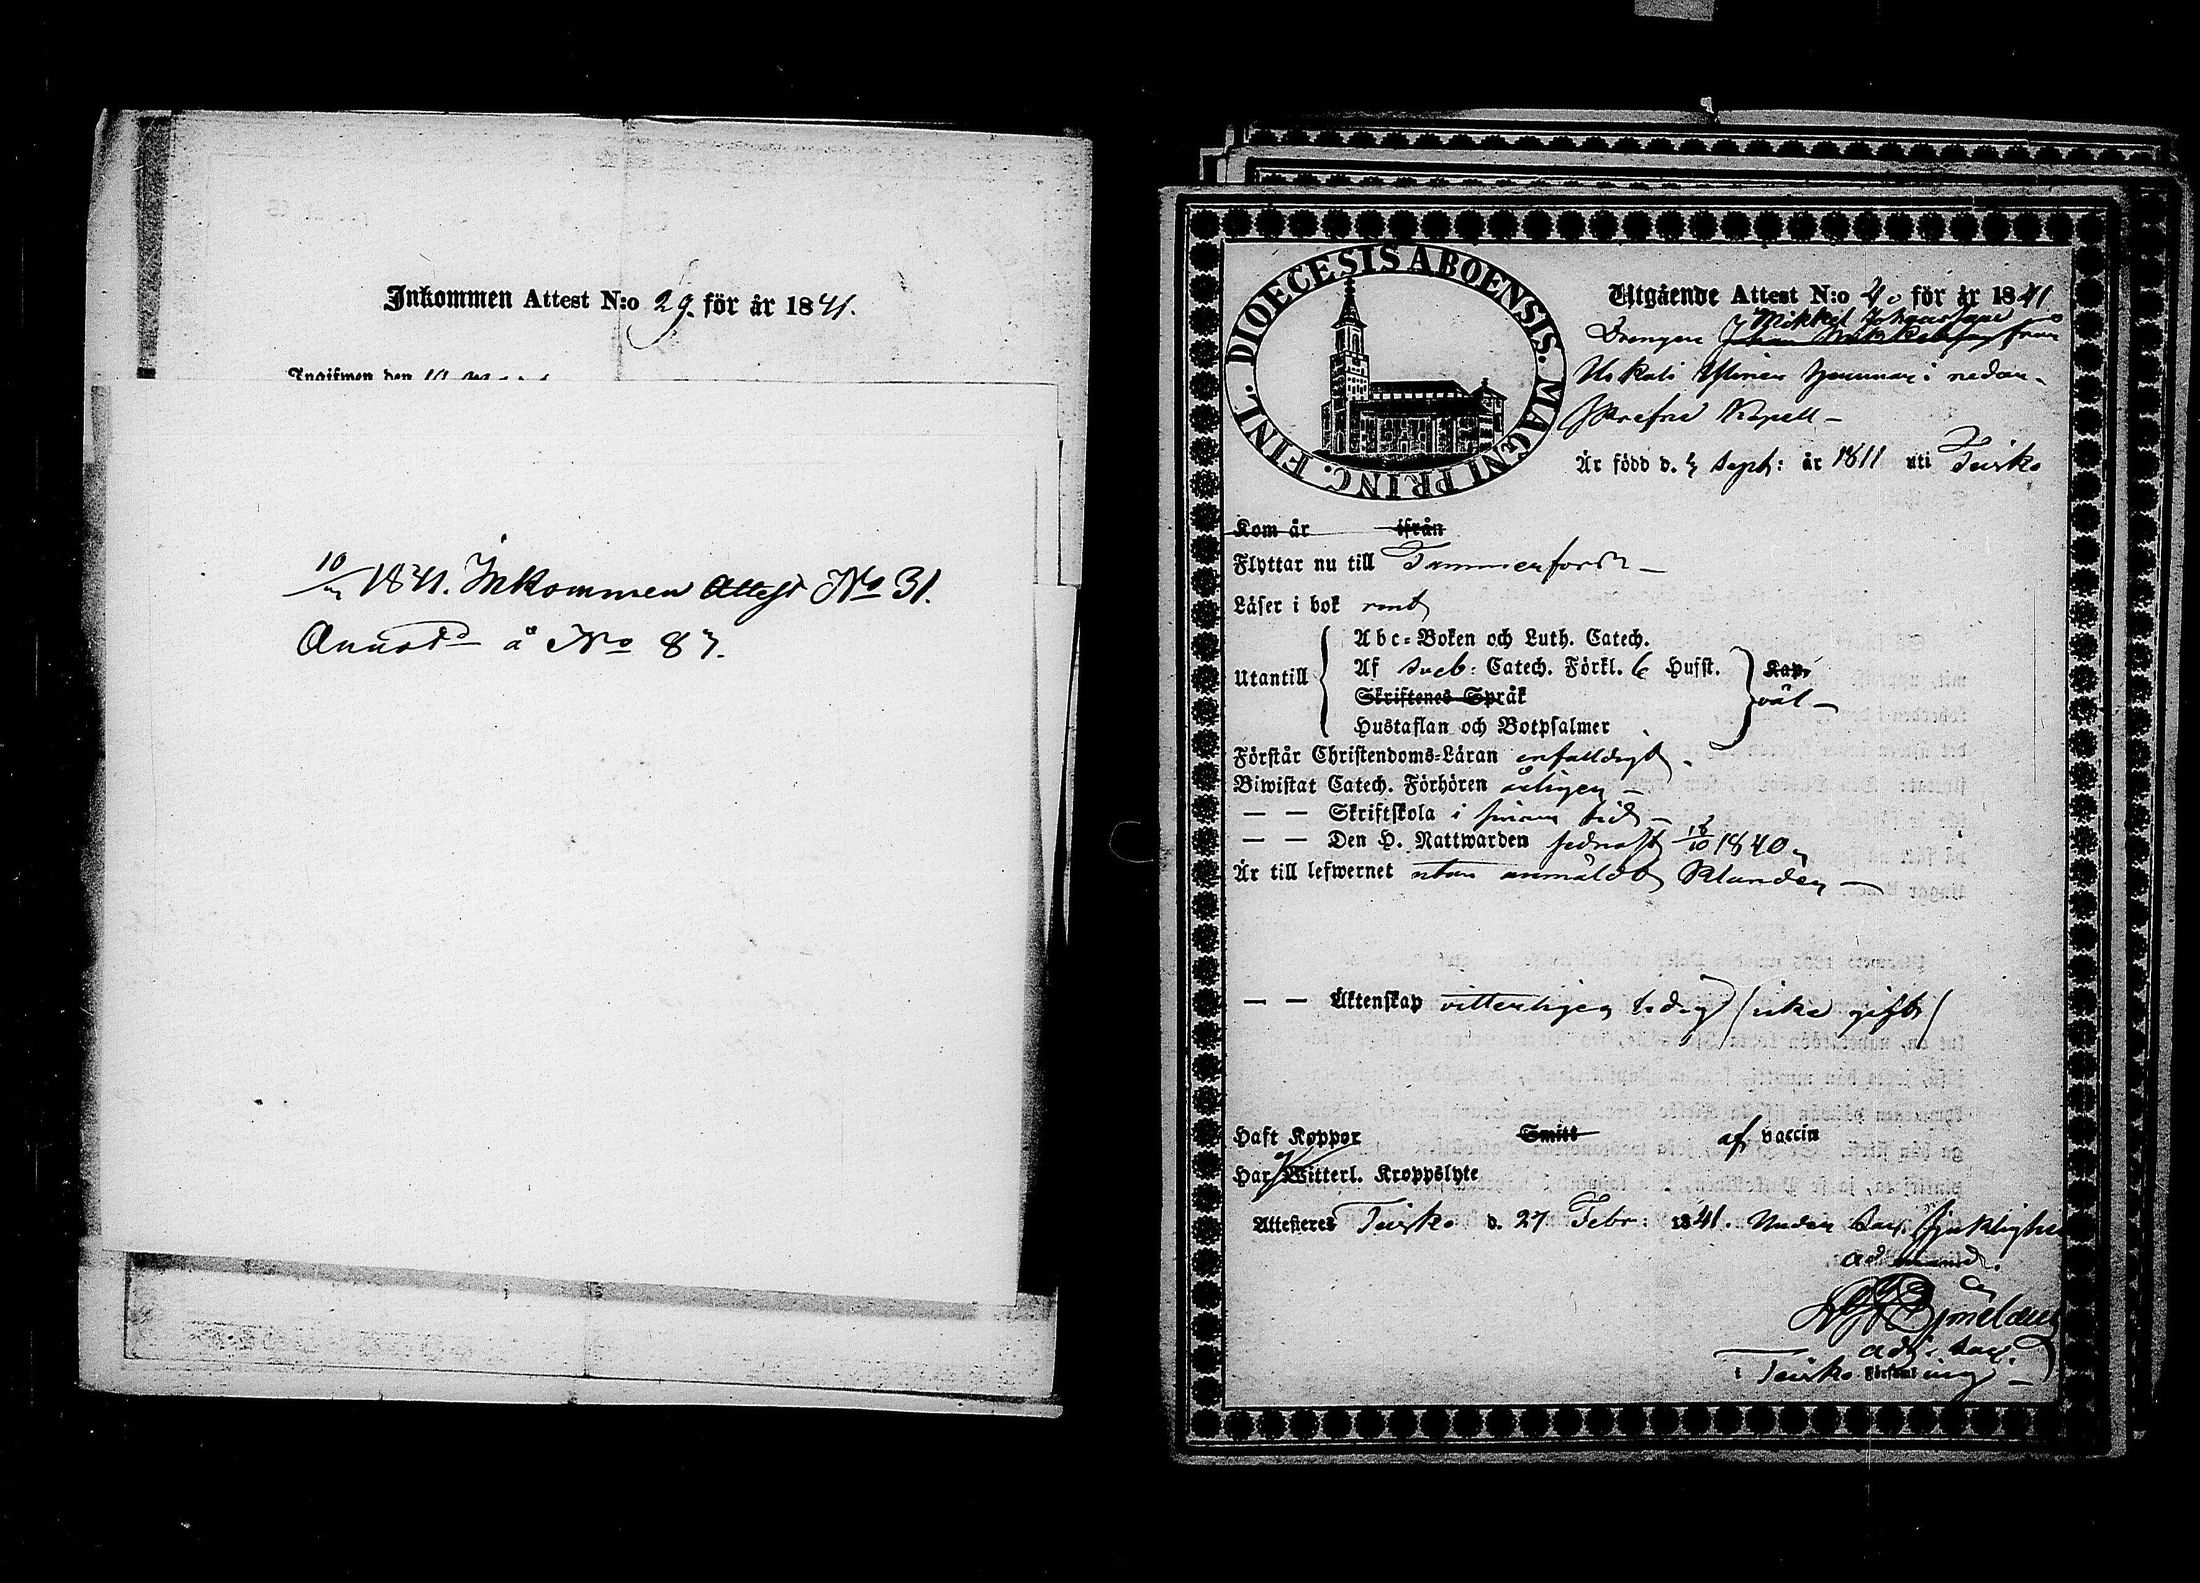 Inkommen Attest N:o 29. för år 1841.
Ingifwen den
10/ 1841. Inkommen Attest No 31.
å No 87.
DIOECESIS ABOENSIS. MAGNI PRINC. FINL.
Utgående Attest N:o för år 1841
Mikkel Johansson
Drengen från
Uskali Hemman i nedan-
Kapell –
Är född d. Sept: år 1811 uti Teisko
Kom år ifrån
Flyttar nu till Tammerfors –
Läser i bok rent
Utantill
Abc-Boken och Luth. Catech.
Af Sveb: Catech. Förkl. 6 Hufst. Kap.
Skriftenes Språk väl –
Hustaflan och Botpsalmer
Förstår Christendoms-Läran enfaldigt.
Biwistat Catech. Förhören årligen –
— — Skriftskola i sinom tid –
— — Den H. Nattwarden sednast 18/10 1840
Är till lefwernet utan anmäldt klander –
— — Äktenskap vitterligen ledig (icke gift)
Haft Koppor Smitt af vaccin
Har Witterl. Kroppslyte
Attesteres Teisko d. 27 Febr: 1841. Under Sac. sjuklighet
adj. i Sacr.
i Teisko Församling –